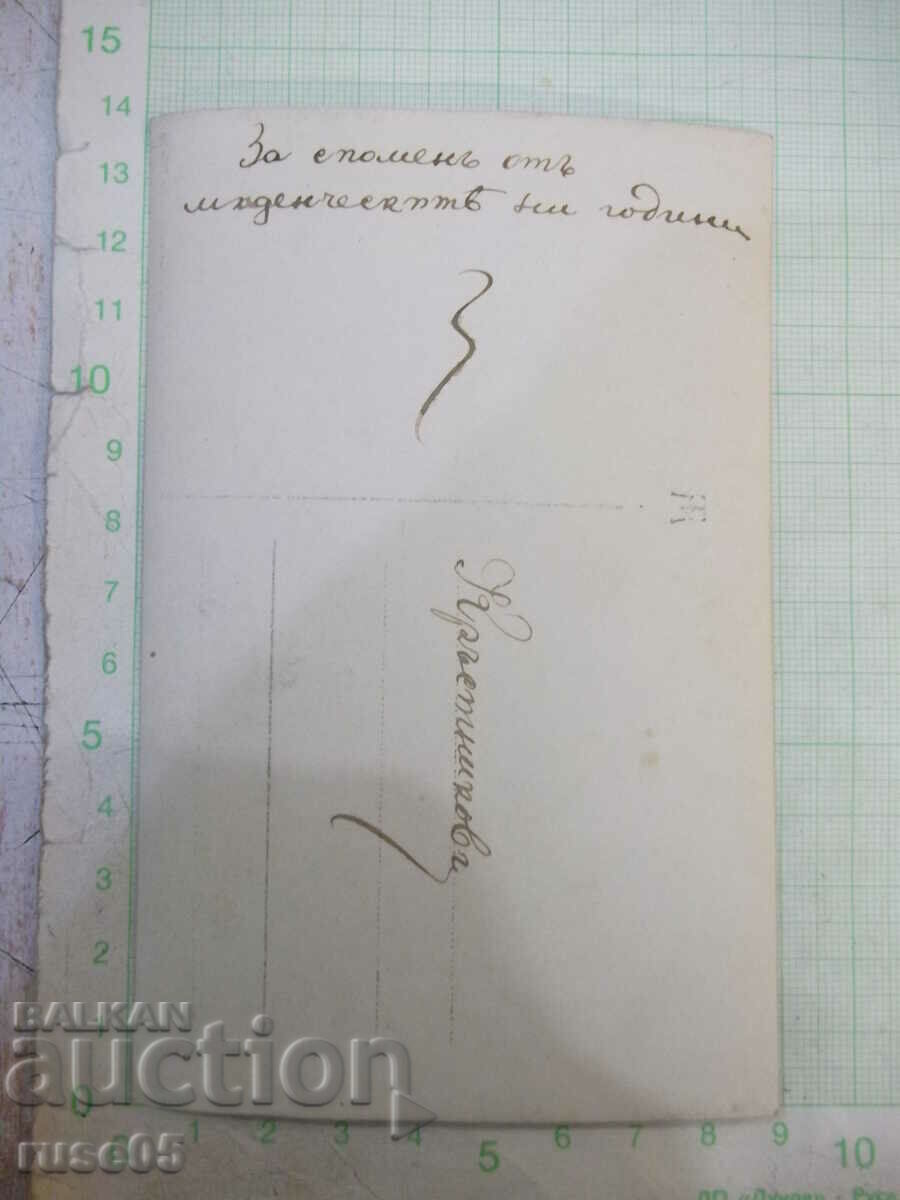 За споменъ отъ
младенческитѣ ни години
Кръстникови
15
14
13
12
11
10
9
8
7
6
5
4
3
2
1
0
1
2
3
4
5
6
7
8
9
10
BALKAN
auction
ruse05